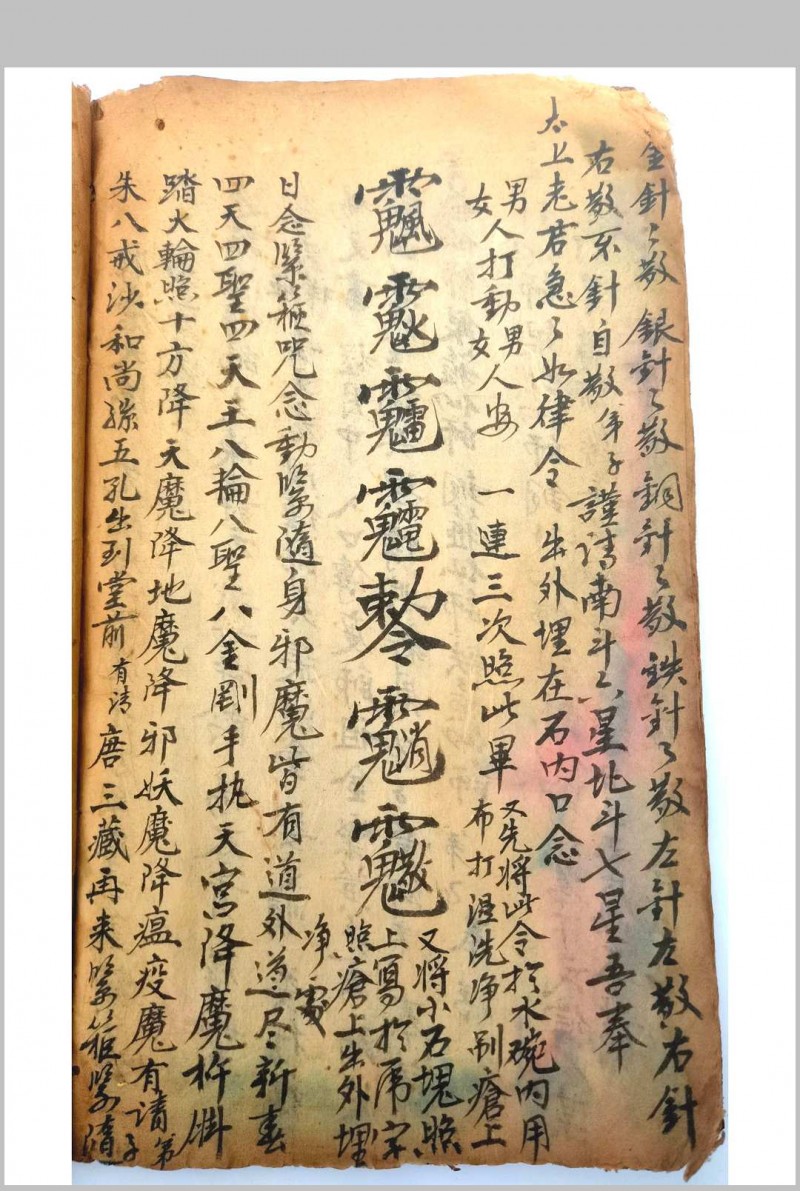 金針〻敬銀針〻敬銅針〻敬鉄針〻敬左針左敬右針
右敬不針自敬弟子謹請南斗六星北斗七星吾奉
太上老君急〻如律令 出外埋在石内口念
男人打動男人安 一連三次照此畢 又先將此令於水碗内用
女 女 布打湿洗净刷瘡上
勅
又將小石塊照
上寫於席字
照瘡上出外埋
净處
日念緊箍咒念動緊隨身邪魔皆有道外道尽新春
四天四聖四天王八輪八聖八金剛手执天宮降魔杵脚
踏火輪照十方降天魔降地魔降邪妖魔降瘟疫魔有請弟子
朱八戒沙和尚孫五孔出到堂前有請唐三藏再来緊箍緊隨